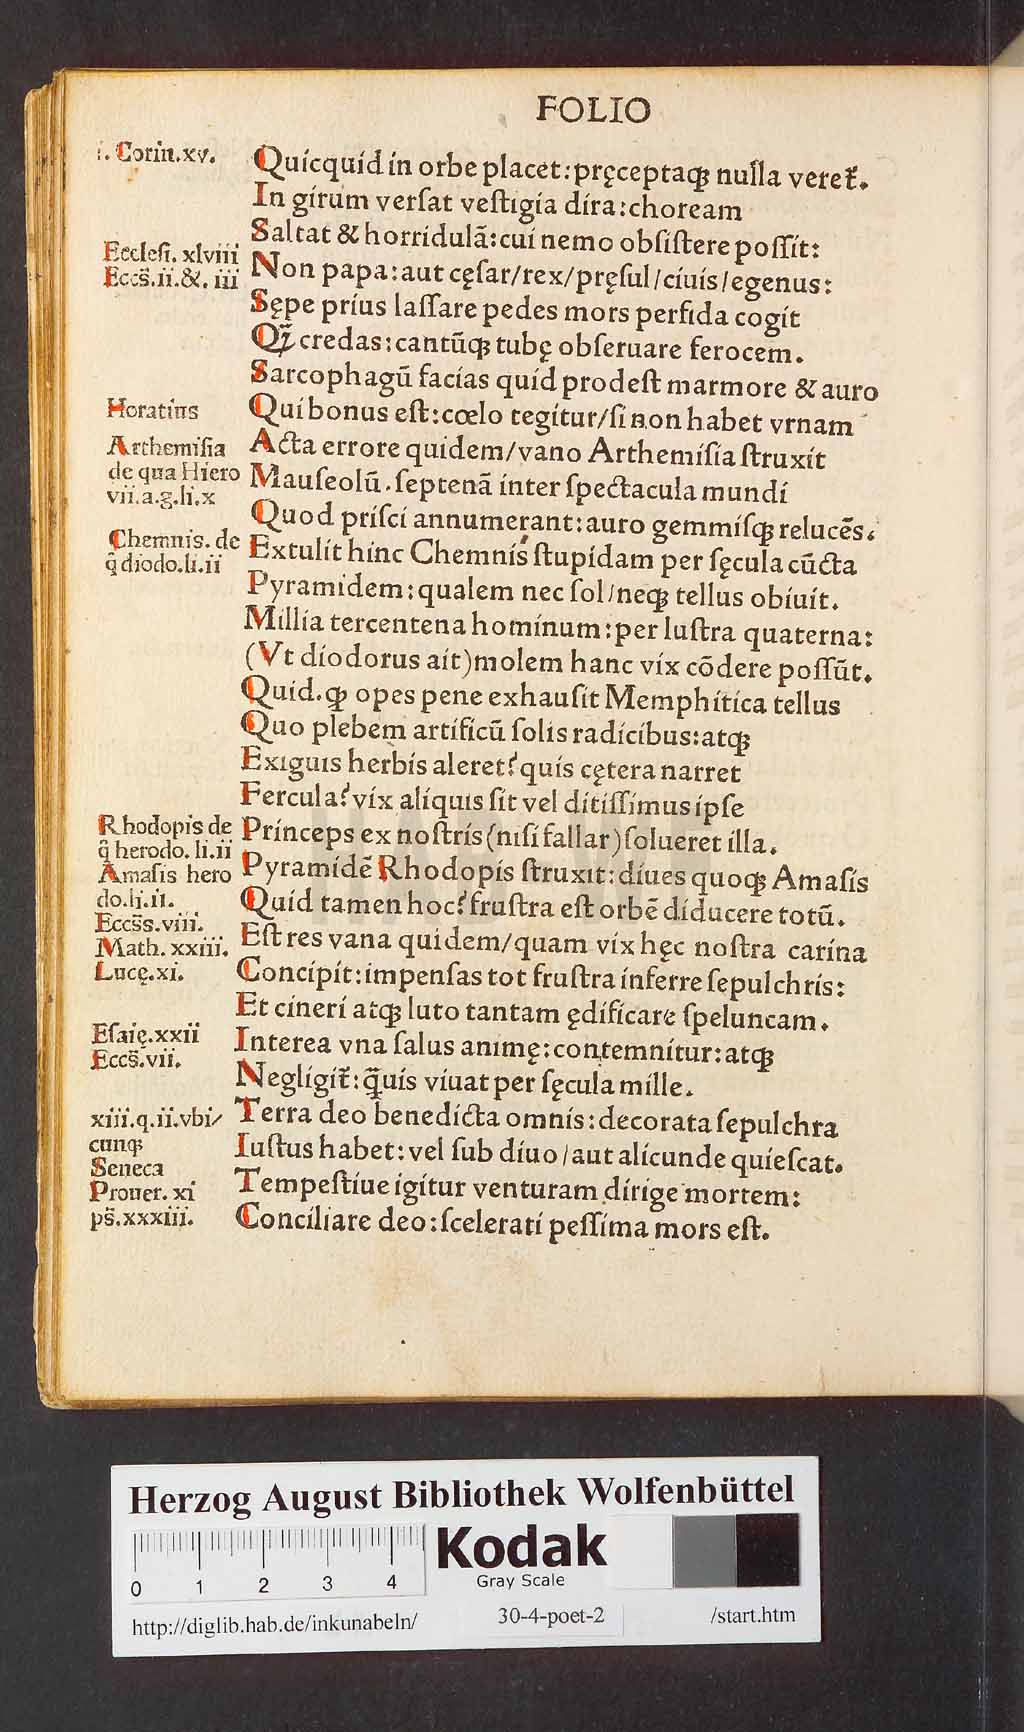 FOLIO
i. Corin.xv.
Quicquid in orbe placet:pręceptaqꝫ nulla veret̃.
In girum verſat veſtigia dira:choream
Saltat & horridulã:cui nemo obſiſtere poſſit:
Eccleſi. xlviii
Eccs̃.ii.&. iii
Non papa:aut cęſar/rex/pręſul/ciuis/egenus:
Sępe prius laſſare pedes mors perfida cogit
Qꝫ̃ credas:cantũqꝫ tubę obſeruare ferocem.
Sarcophagũ facias quid prodeſt marmore & auro
Horatius
Qui bonus eſt:cœlo tegitur/ſi non habet vrnam
Arthemiſia
de qua Hiero
vii.a.g.li.x
Acta errore quidem/vano Arthemiſia ſtruxit
Mauſeolũ.ſeptenã inter ſpectacula mundi
Quod priſci annumerant:auro gemmiſqꝫ relucẽs.
Chemnis. de
q̃ diodo.li.ii
Extulit hinc Chemnis ſtupidam per ſęcula cũcta
Pyramidem:qualem nec ſol/neqꝫ tellus obiuit.
Millia tercentena hominum:per luſtra quaterna:
(Vt diodorus ait)molem hanc vix cõdere poſſũt.
Quid.qꝫ opes pene exhauſit Memphitica tellus
Quo plebem artificũ ſolis radicibus:atqꝫ
Exiguis herbis aleret? quis cętera narret
Fercula? vix aliquis ſit vel ditiſſimus ipſe
Rhodopis de
q̃ herodo. li.ii
Amaſis hero
do.li.ii.
Princeps ex noſtris(niſi fallar)ſolueret illa.
Pyramidẽ Rhodopis ſtruxit:diues quoqꝫ Amaſis
Quid tamen hoc? fruſtra eſt orbẽ diducere totũ.
Eccs̃s.viii.
Math. xxiii.
Lucę.xi.
Eſt res vana quidem/quam vix hęc noſtra carina
Concipit:impenſas tot fruſtra inferre ſepulchris:
Et cineri atqꝫ luto tantam ędificare ſpeluncam.
Eſaię.xxii
Eccs̃.vii.
Interea vna ſalus animę:contemnitur:atqꝫ
Negligit̃:q̃uis viuat per ſęcula mille.
xiii.q.ii.vbi/
cunqꝫ
Seneca
Prouer. xi
ps̃.xxxiii.
Terra deo benedicta omnis:decorata ſepulchra
Iuſtus habet:vel ſub diuo/aut alicunde quieſcat.
Tempeſtiue igitur venturam dirige mortem:
Conciliare deo:ſcelerati peſſima mors eſt.
HAB-WF
Herzog August Bibliothek Wolfenbüttel
0 1 2 3 4
Kodak
Gray Scale
http://diglib.hab.de/inkunabeln/ 30-4-poet-2 /start.htm